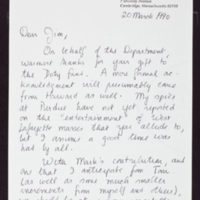 Cambridge, Massachusetts 02138
20 March 1990
Dear Jim,
On behalf of the Department,
warmest thanks for your gift to
the Doty Fund. A more formal ac-
knowledgement will presumably come
from Harvard as well. My spies
at Purdue have not yet reported
on the "entertainment" of West
Lafayette manses that you allude to,
but I assume a good time was
had by all.
With Mark's contribution, and
on that I anticipate from Tom
(as well as some much smaller
increments from myself and others),